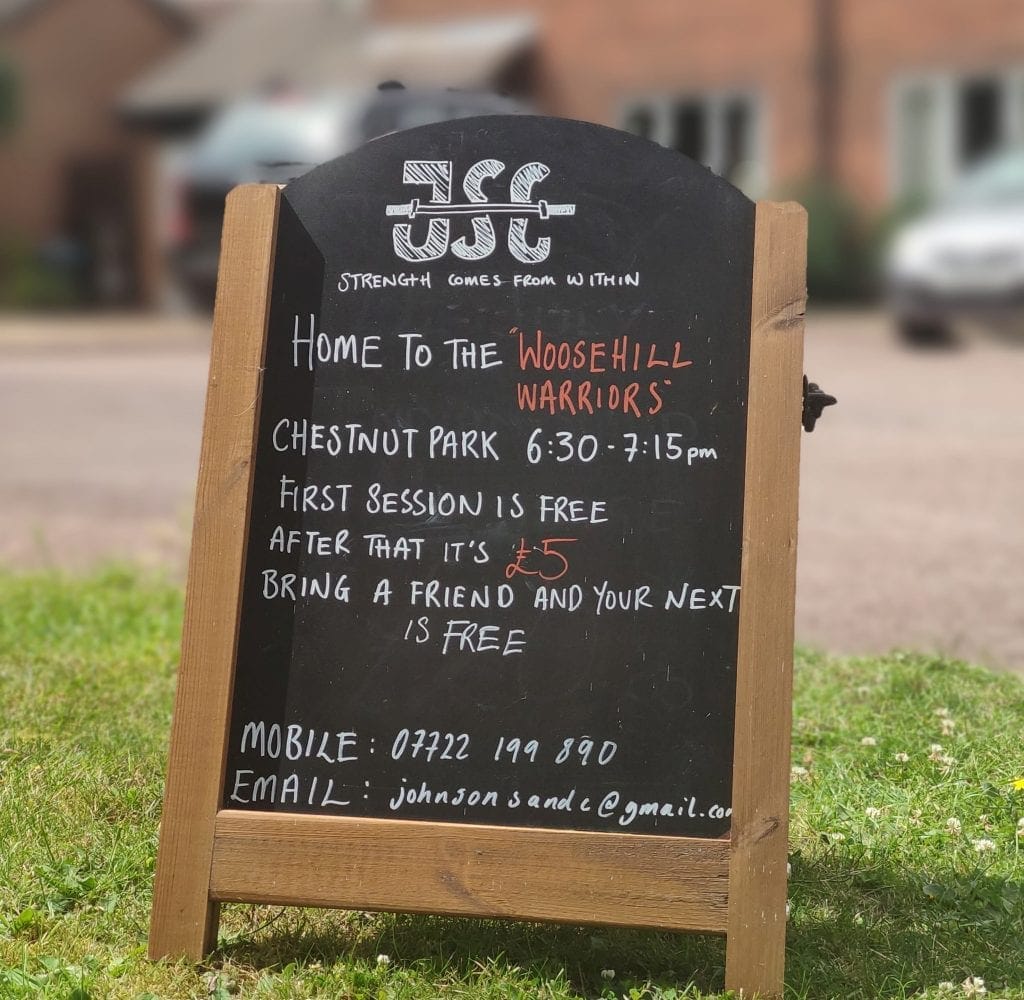 JSC
STRENGTH COMES FROM WITHIN
HOME TO THE "WOOSEHILL
WARRIORS"
CHESTNUT PARK 6:30-7:15pm
FIRST SESSION IS FREE
AFTER THAT IT'S £5
BRING A FRIEND AND YOUR NEXT
IS FREE
MOBILE: 07722 199 890
EMAIL: johnsonsandc@gmail.com